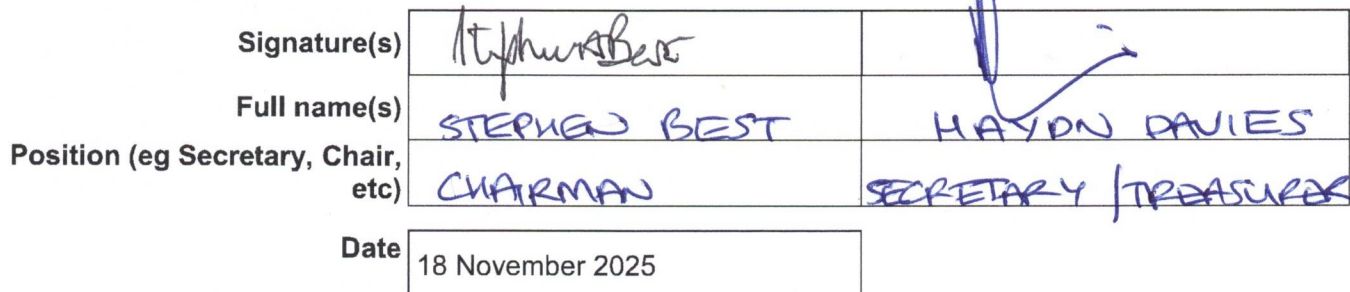 Signature(s) Stephen A Best
Full name(s) STEPHEN BEST HAYDN DAVIES
Position (eg Secretary, Chair, etc) CHAIRMAN SECRETARY / TREASURER
Date 18 November 2025